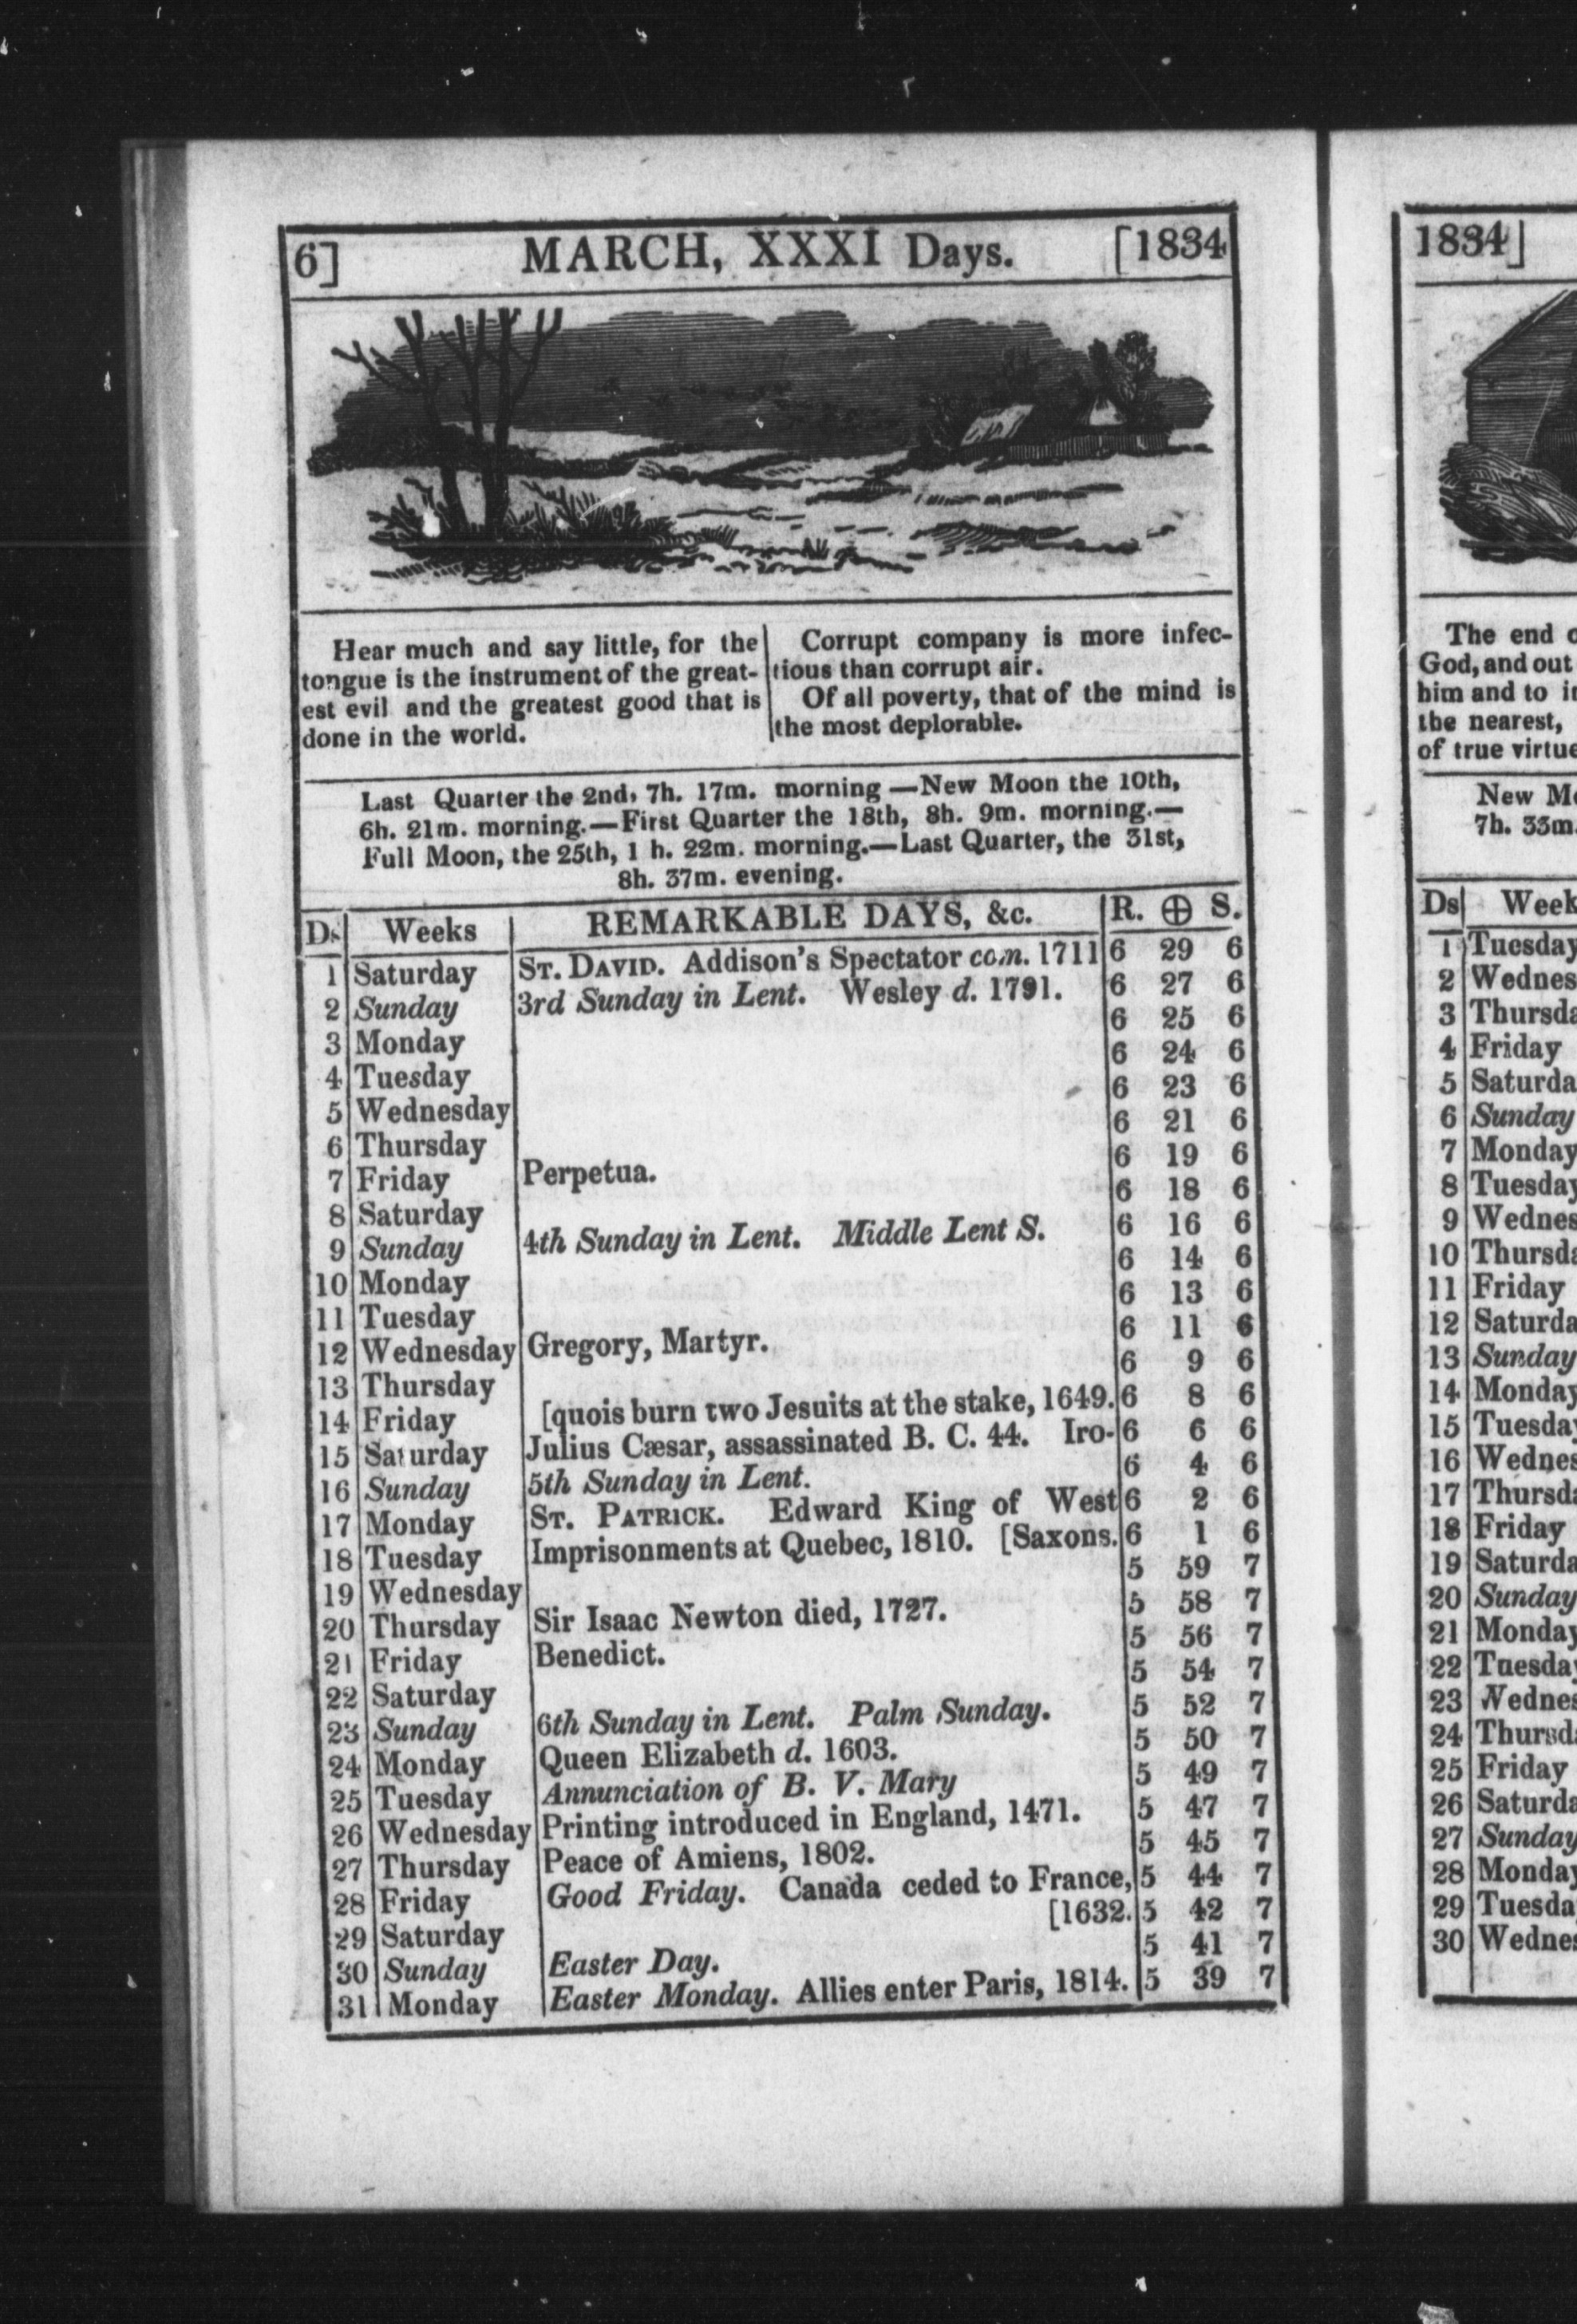 6] MARCH, XXXI Days. [1834
Hear much and say little, for the
tongue is the instrument of the great-
est evil and the greatest good that is
done in the world.
Corrupt company is more infec-
tious than corrupt air.
Of all poverty, that of the mind is
the most deplorable.
Last Quarter the 2nd, 7h. 17m. morning —New Moon the 10th,
6h. 21m. morning.—First Quarter the 18th, 8h. 9m. morning.—
Full Moon, the 25th, 1 h. 22m. morning.—Last Quarter, the 31st,
8h. 37m. evening.
Ds Weeks REMARKABLE DAYS, &c. R. ⊕ S.
1 Saturday ST. DAVID. Addison's Spectator com. 1711 6 29 6
2 Sunday 3rd Sunday in Lent. Wesley d. 1791. 6 27 6
3 Monday 6 25 6
4 Tuesday 6 24 6
5 Wednesday 6 23 6
6 Thursday 6 21 6
7 Friday Perpetua. 6 19 6
8 Saturday 6 18 6
9 Sunday 4th Sunday in Lent. Middle Lent S. 6 16 6
10 Monday 6 14 6
11 Tuesday 6 13 6
12 Wednesday Gregory, Martyr. 6 11 6
13 Thursday 6 9 6
14 Friday [quois burn two Jesuits at the stake, 1649. 6 8 6
15 Saturday Julius Cæsar, assassinated B. C. 44. Iro- 6 6 6
16 Sunday 5th Sunday in Lent. 6 4 6
17 Monday ST. PATRICK. Edward King of West 6 2 6
18 Tuesday Imprisonments at Quebec, 1810. [Saxons. 6 1 6
19 Wednesday 5 59 7
20 Thursday Sir Isaac Newton died, 1727. 5 58 7
21 Friday Benedict. 5 56 7
22 Saturday 5 54 7
23 Sunday 6th Sunday in Lent. Palm Sunday. 5 52 7
24 Monday Queen Elizabeth d. 1603. 5 50 7
25 Tuesday Annunciation of B. V. Mary 5 49 7
26 Wednesday Printing introduced in England, 1471. 5 47 7
27 Thursday Peace of Amiens, 1802. 5 45 7
28 Friday Good Friday. Canada ceded to France, 5 44 7
29 Saturday [1632. 5 42 7
30 Sunday Easter Day. 5 41 7
31 Monday Easter Monday. Allies enter Paris, 1814. 5 39 7
1834]
The end
God, and out
him and to
the nearest,
of true virtue
New
7h. 33m.
Ds Week
1 Tuesday
2 Wednes
3 Thursda
4 Friday
5 Saturda
6 Sunday
7 Monday
8 Tuesday
9 Wednes
10 Thursda
11 Friday
12 Saturda
13 Sunday
14 Monday
15 Tuesday
16 Wednes
17 Thursda
18 Friday
19 Saturda
20 Sunday
21 Monday
22 Tuesday
23 Wednes
24 Thursda
25 Friday
26 Saturda
27 Sunday
28 Monday
29 Tuesda
30 Wednes